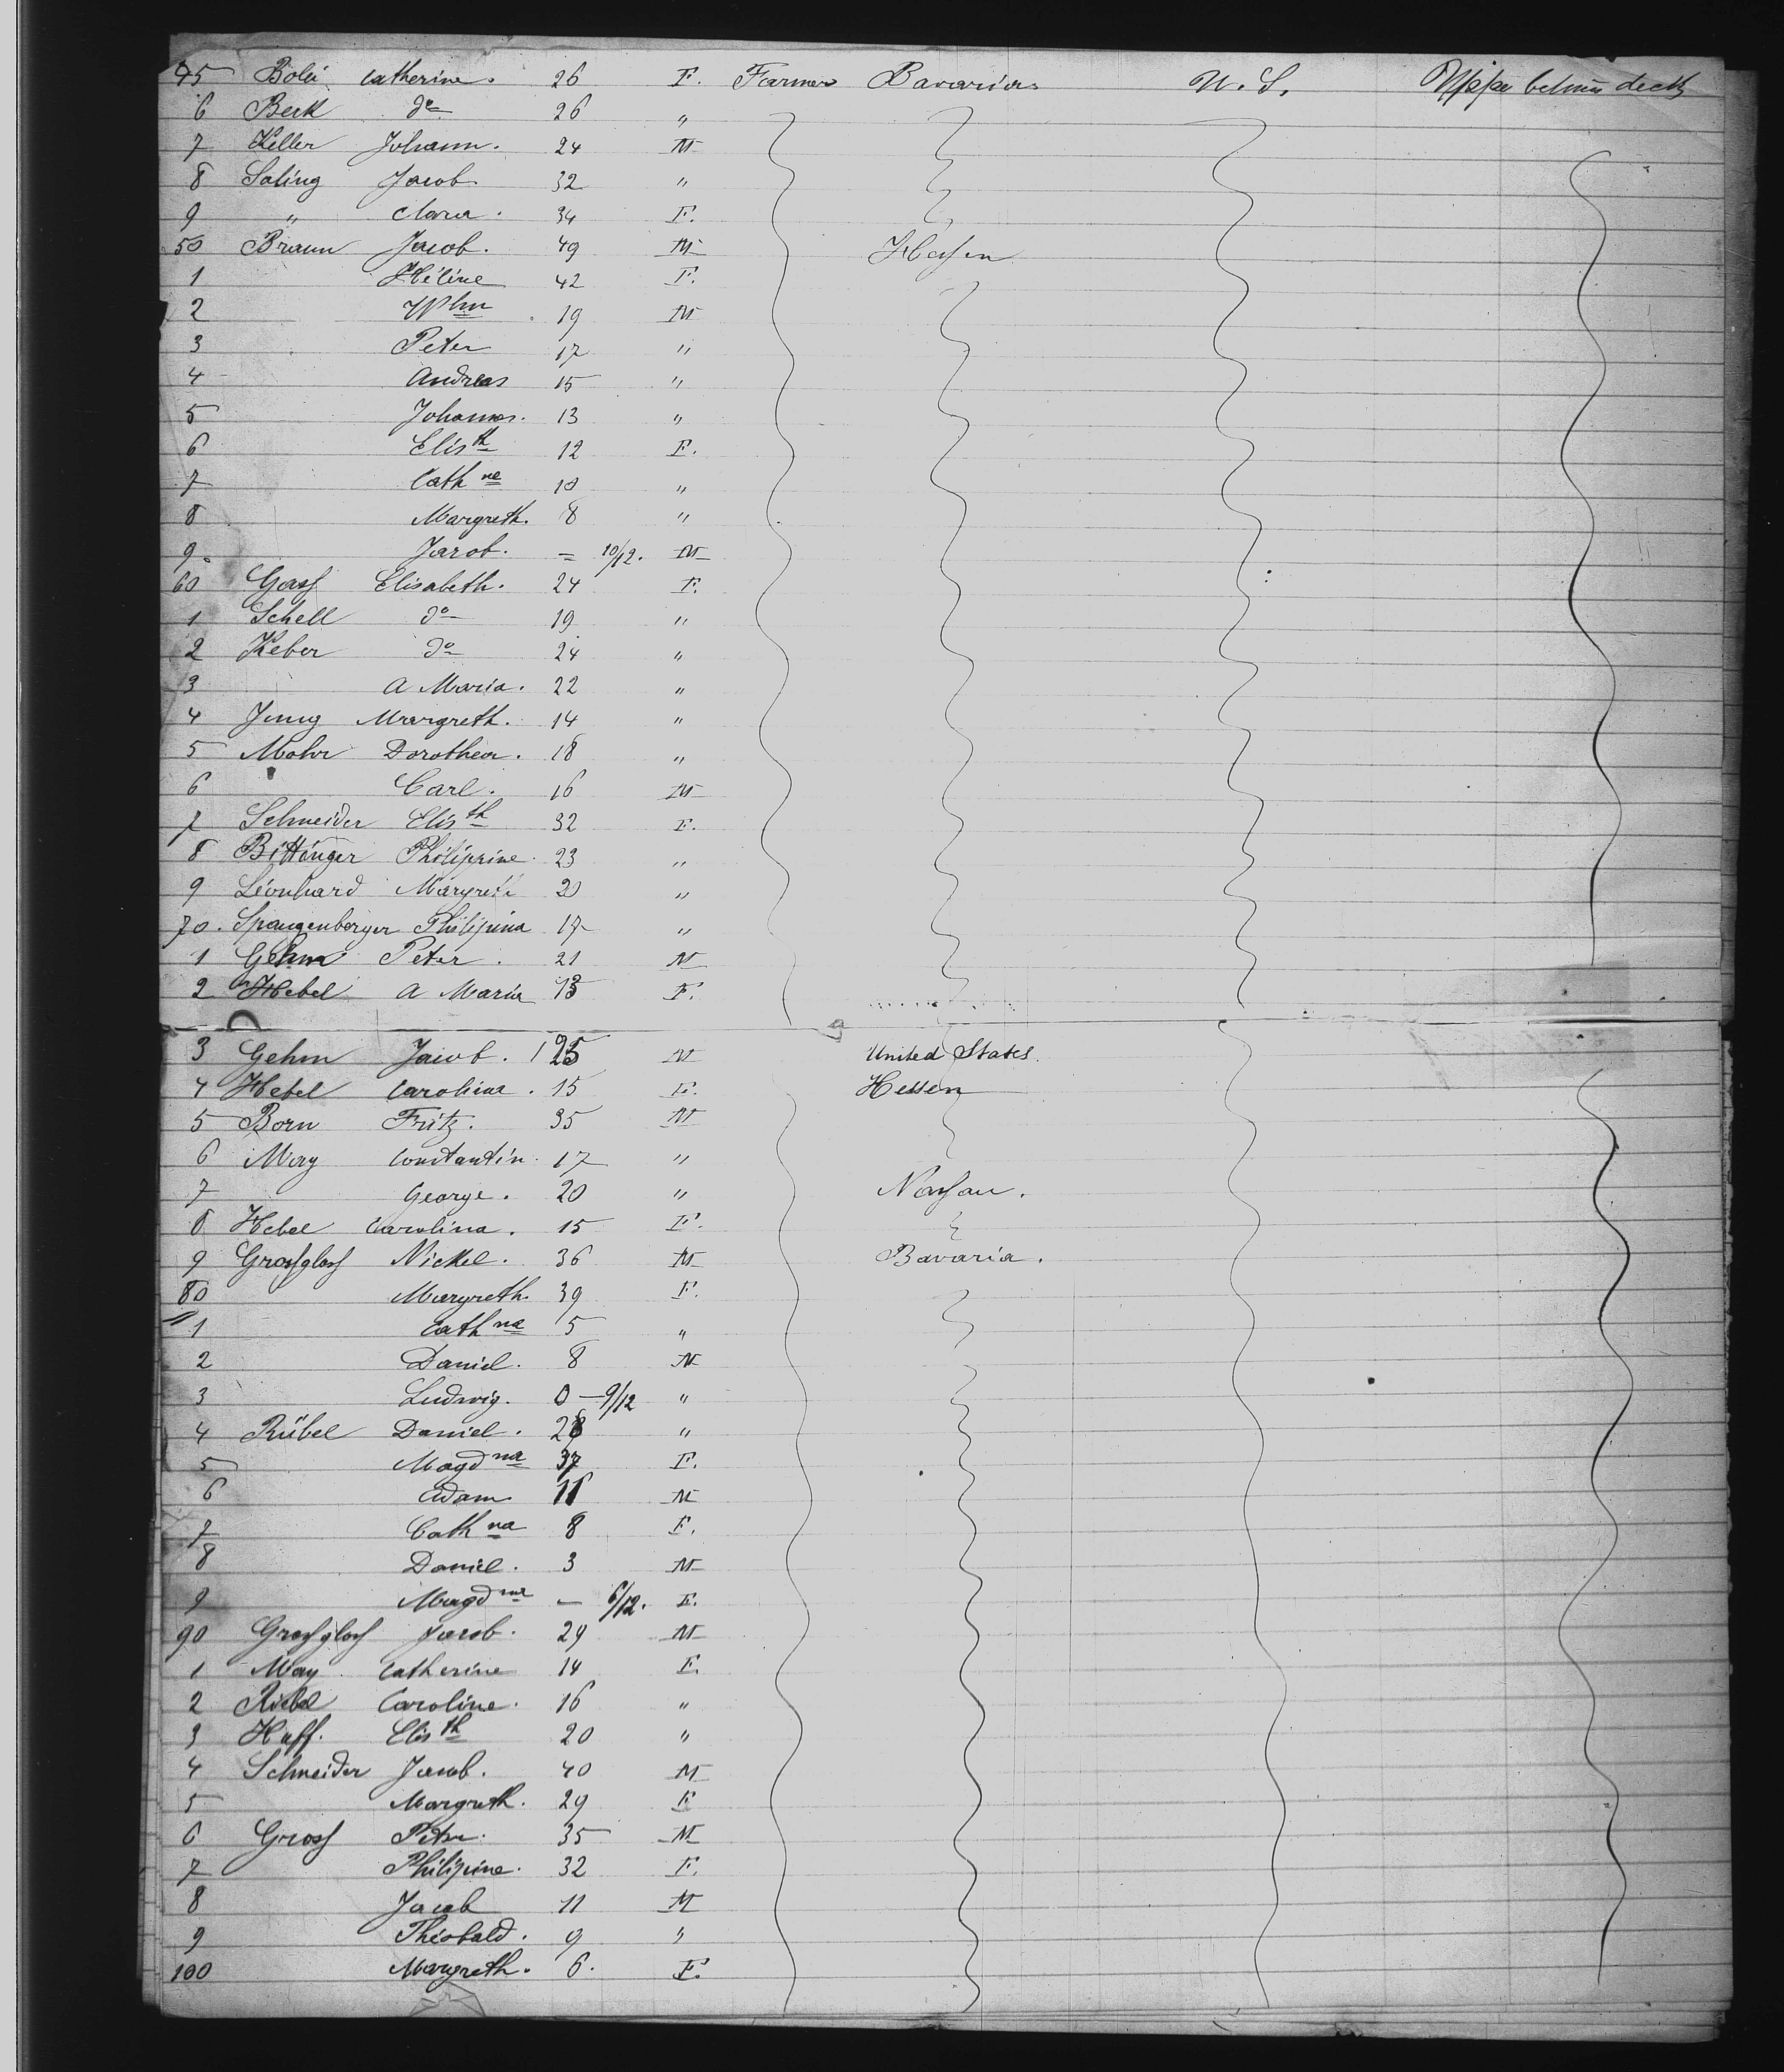 45 Bolei Catherine. 26 F. Farmer Bavaria U. S. Upper betwn decks
6 Beck do 26 "
7 Keller Johann. 24 M
8 Saling Jacob 32 "
9 " Clara. 34 F.
50 Braun Jacob. 49 M Hessen
1 Hélène 42 F.
2 Whlm 19 M
3 Peter 17 "
4 Andreas 15 "
5 Johannes. 13 "
6 Elisth 12 F.
7 Cathne 10 "
8 Margreth. 8 "
9 Jacob. = 10/12. M
60 Gass Elisabeth. 24 F.
1 Schell do 19 "
2 Keber do 24 "
3 A Maria. 22 "
4 Jung Margreth. 14 "
5 Mohr Dorothea. 18 "
6 Carl. 16 M
7 Schneider Elisth 32 F.
8 Bittinger Philippine. 23 "
9 Léonhard Margreth 20 "
70. Spangenberger Philipina 17 "
1 Gehm Peter. 21 M
2 Hebel A Maria 13 F.
3 Gehm Jacob. 25 M United States.
4 Hebel Carolina. 15 F. Hessen
5 Born Fritz. 35 M
6 May Constantin. 17 "
7 George. 20 " Nassau.
8 Hebel Carolina. 15 F.
9 Grossglass Nickel. 36 M Bavaria.
80 Margreth. 39 F.
1 Cathna 5 "
2 Daniel. 8 M
3 Ludwig. 0 — 9/12 "
4 Rübel Daniel. 28 "
5 Magdna 37 F.
6 Adam 11 M
7 Cathna 8 F.
8 Daniel. 3 M
9 Magdna — 6/12. F.
90 Grossgloss Jacob. 29 M
1 May Catherine 14 F.
2 Rübel Caroline. 16 "
3 Huff. Elisth 20 "
4 Schneider Jacob. 40 M
5 Margreth. 29 F
6 Gross Peter. 35 M
7 Philipine. 32 F.
8 Jacob 11 M
9 Théobald. 9 "
100 Margreth. 6. F.